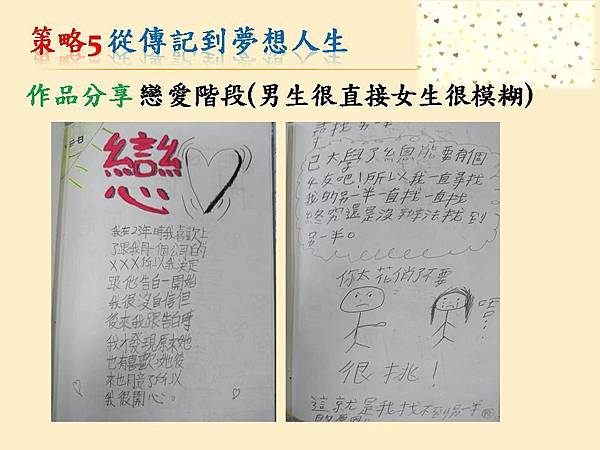 策略5 從傳記到夢想人生
作品分享 戀愛階段(男生很直接女生很模糊)
戀
我在23年時我喜歡上
了跟我同一個公司的
XXX所以我決定
跟他告白一開始
我很沒自信但
後來我跟告白時
我才發現原來她
也有喜歡我她後
來也同意了所以
我很開心。
尋找另一半
已大學了總是應要有個
女友吧！所以我一直尋找
我的另一半一直找一直找
終究還是沒辦法找到
另一半。
你太花俏了不要
唔
很挑！
這就是我找不到另一半
的原因